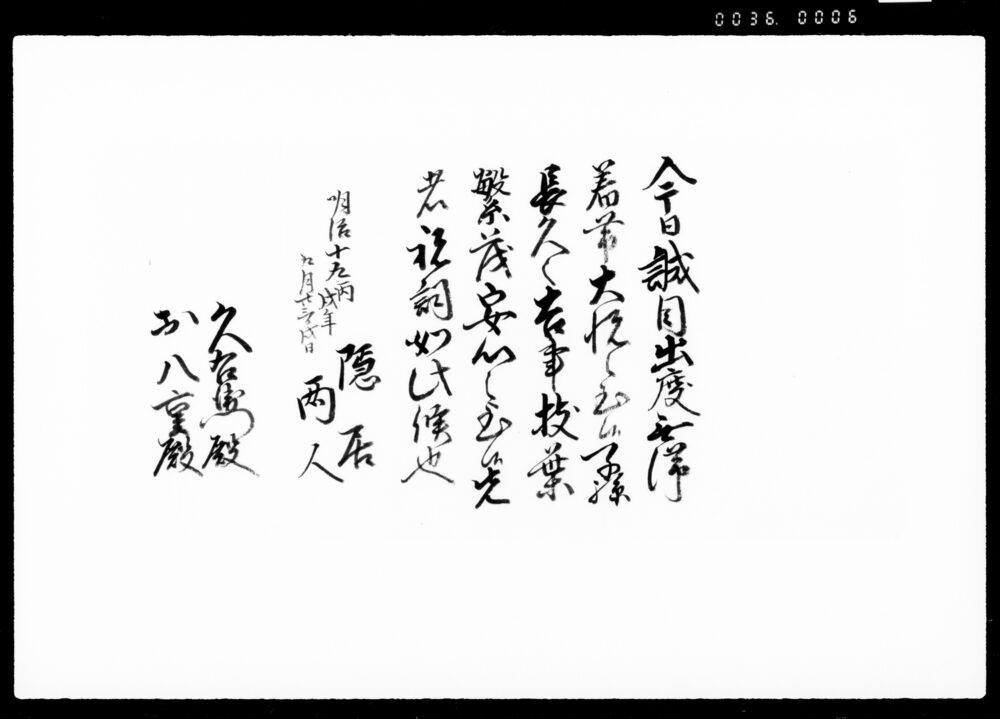 0036. 0006
今日誠目出度無滞
着帯大悦々至ニ候子孫
長久々吉事枝葉
繁茂安心々至ニ候先
者祝詞如此候也
明治十九丙
戌年
九月廿三戌日
隠居
両人
久右衛門殿
お八重殿